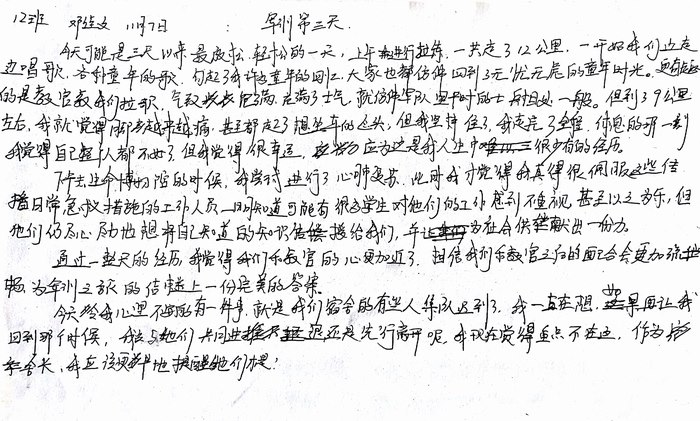 12班 邓 文 11月7日 军训第三天.
今天可能是三天以来最放松.轻松的一天,上午进行拉练.一共走了12公里.一开始我们边走
边唱歌.各种童年的歌.勾起了我许多童年的回忆.大家也都仿佛回到了无忧无虑的童年时光。更有意思
的是教官教我们拉歌,气氛饱满,充满了士气 就仿佛军队里平时的士兵一般。但到了9公里
左右,我就觉得脚越来越痛,甚至都起了想坐车的念头,但我坚持住了.我走完了全程,休息的那一刻
我觉得自己整个人都不好了.但我觉得很幸运,因为这是我人生中很少有的经历。
下午生命博物馆的时候,我尝试进行了心肺复苏.此时我才觉得我真得很佩服这些传
播日常急救措施的工作人员.明知道可能有很多学生对他们的工作感到不重视,甚至以之为乐,但
他们仍尽心尽力地想将自己知道的知识传授给我们,为社会献出一份力。
通过一整天的经历,我觉得我们和教官的心更加近了.相信我们和教官之间的配合会更加
为军训之旅的结尾画上一份完美的答案
今天令我心里不安的有一件事,就是我们宿舍的有些人集队迟到了.我一直在想.如果再让我
回到那个时候,我去与他们共同迟还是先行离开呢.我现在觉得重点不在这,作为
舍长,我应该更早地提醒他们才是!